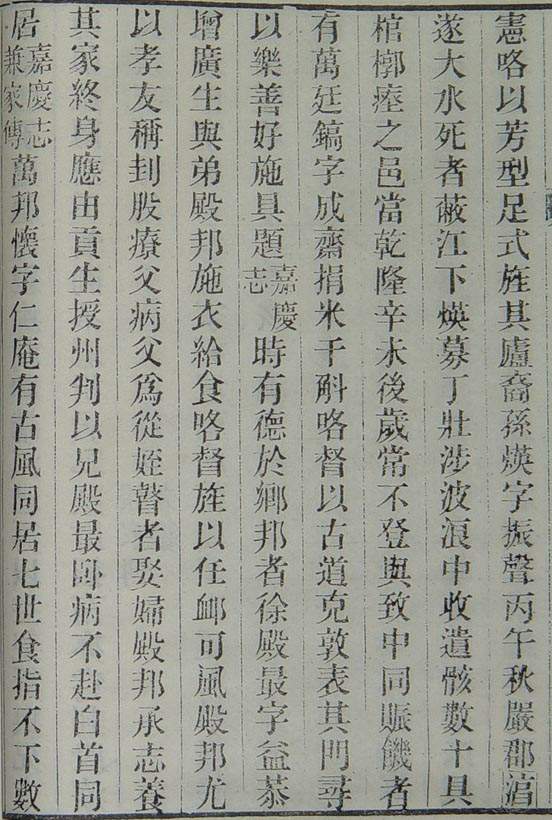 憲咯以芳型足式旌其廬裔孫煐字振聲丙午秋嚴郡湻
遂大水死者蔽江下煐募丁壯涉波浪中收遺骸數十具
棺槨瘞之邑當乾隆辛未後歲常不登與致中同賑饑者
有萬廷鎬字成齋捐米千斛咯督以古道克敦表其門尋
以樂善好施具題嘉慶志時有德於鄉邦者徐殿最字益恭
增廣生與弟殿邦施衣給食咯督旌以任卹可風殿邦尤
以孝友稱刲股療父病父為從姪瞽者娶婦殿邦承志養
其家終身應由貢生授州判以兄殿最臥病不赴白首同
居嘉慶志兼家傳萬邦懷字仁庵有古風同居七世食指不下數